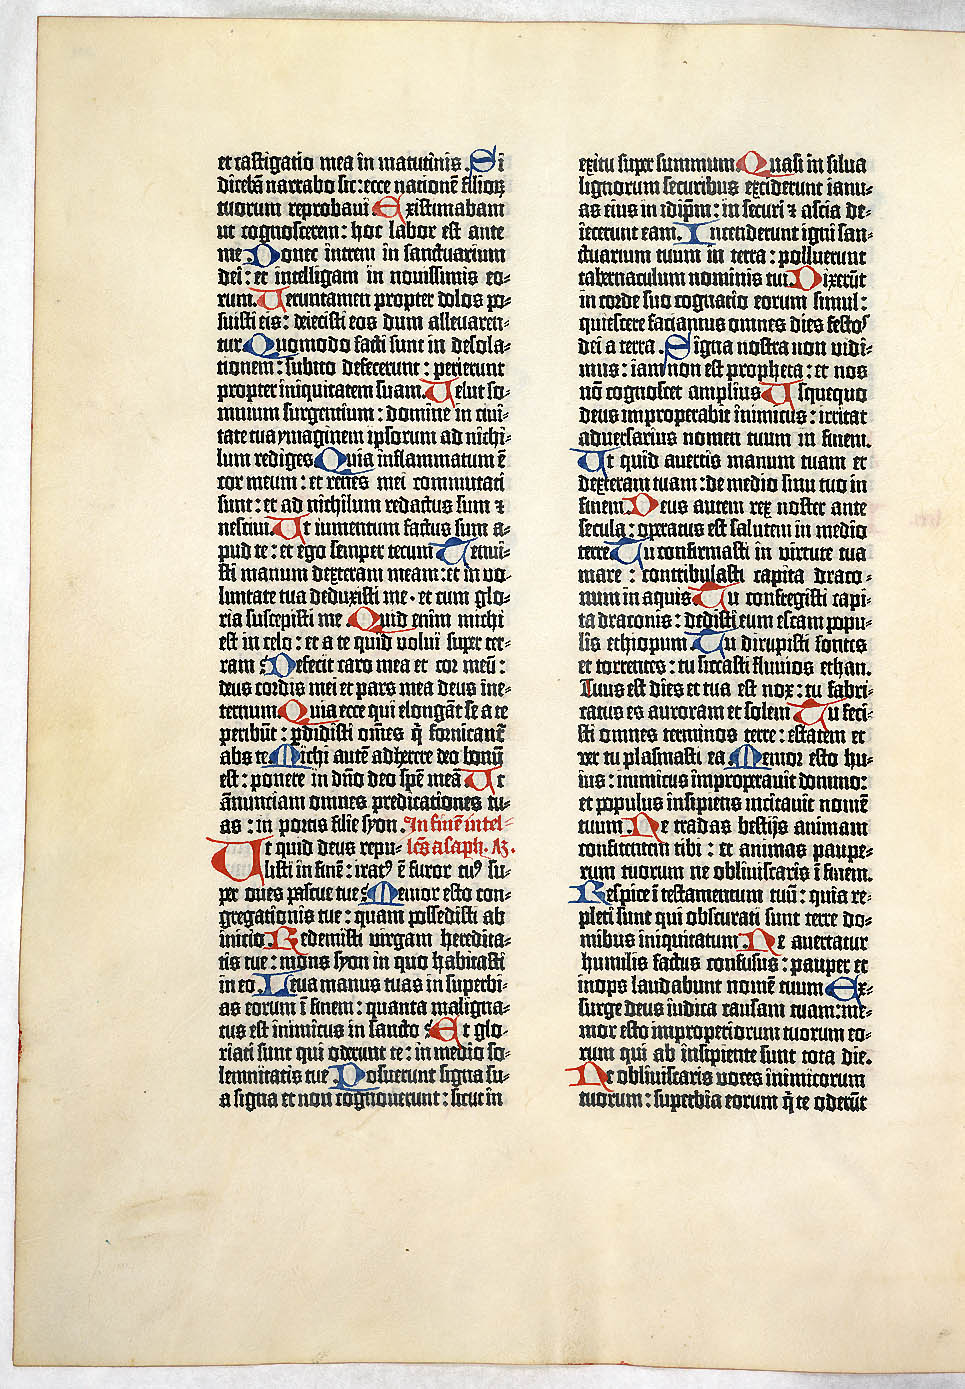 et castigatio mea in matutinis. Si
dicebā narrabo sic: ecce nationē filioꝝ
tuorum reprobavi Existimabam
ut cognoscerem: hoc labor est ante
me. Donec intrem in sanctuarium
dei: et intelligam in novissimis eo-
rum. Veruntamen propter dolos po-
suisti eis: deiecisti eos dum allevaren-
tur. Quomodo facti sunt in desola-
tionem: subito defecerunt: perierunt
propter iniquitatem suam. Velut so-
mnium surgentium: domine in civi-
tate tua ymaginem ipsorum ad nichi-
lum rediges Quia inflammatum ē
cor meum: et renes mei commutati
sunt: et ad nichilum redactus sum ⁊
nescivi. Ut iumentum factus sum a-
pud te: et ego semper tecum Tenui-
sti manum dexteram meam: et in vo-
luntate tua deduxisti me · et cum glo-
ria suscepisti me Quid enim michi
est in celo: et a te quid volui super ter-
ram Defecit caro mea et cor meū:
deus cordis mei et pars mea deus in e-
ternum Quia ecce qui elongāt se a te
peribūt: ꝑdidisti om̄es q̄ fornicant᷑
abs te. Michi autē adherere deo bonū
est: ponere in dn̄o deo spē meā Ut
ānunciam omnes predicationes tu-
as: in portis filie syon. In finē intel-
Ut quid deus repu- lect᷒ asaph. Aꝫ.
listi in finē: irat᷒ ē furor tu᷒ su-
per oves pascue tue Memor esto con-
gregationis tue: quam possedisti ab
inicio. Redemisti virgam heredita-
tis tue: mons syon in quo habitasti
in eo. Leva manus tuas in superbi-
as eorum ī finem: quanta maligna-
tus est inimicus in sancto Et glo-
riati sunt qui oderunt te: in medio so-
lemnitatis tue Posuerunt signa su-
a signa et non cognoverunt: sicut in
exitu super summum Quasi in silva
lignorum securibus exciderunt ianu-
as eius in idip̄m: in securi ⁊ ascia de-
iecerunt eam. Incenderunt igni san-
ctuarium tuum in terra: polluerunt
tabernaculum nominis tui. Dixerūt
in corde suo cognatio eorum simul:
quiescere faciamus omnes dies festos
dei a terra. Signa nostra non vidi-
mus: iam non est propheta: et nos
nō cognoscet amplius Usquequo
deus improperabit inimicus: irritat
adversarius nomen tuum in finem.
Ut quid avertis manum tuam et
dexteram tuam: de medio sinu tuo in
finem Deus autem rex noster ante
secula: operatus est salutem in medio
terre Tu confirmasti in virtute tua
mare: contribulasti capita draco-
num in aquis Tu confregisti capi-
ta draconis: dedisti eum escam popu-
lis ethiopum Tu dirupisti fontes
et torrentes: tu siccasti fluvios ethan.
Tuus est dies et tua est nox: tu fabri-
catus es auroram et solem Tu feci-
sti omnes terminos terre: estatem et
ver tu plasmasti ea Memor esto hu-
ius: inimicus improperavit domino:
et populus insipiens incitavit nomē
tuum. Ne tradas bestijs animam
confitentem tibi: et animas paupe-
rum tuorum ne obliviscaris ī finem.
Respice ī testamentum tuū: quia re-
pleti sunt qui obscurati sunt terre do-
mibus iniquitatum. Ne avertatur
humilis factus confusus: pauper et
inops laudabunt nomē tuum Ex-
surge deus iudica causam tuam: me-
mor esto improperiorum tuorum eo-
rum qui ab insipiente sunt tota die.
Ne obliviscaris voces inimicorum
tuorum: superbia eorum q̄ te oderūt